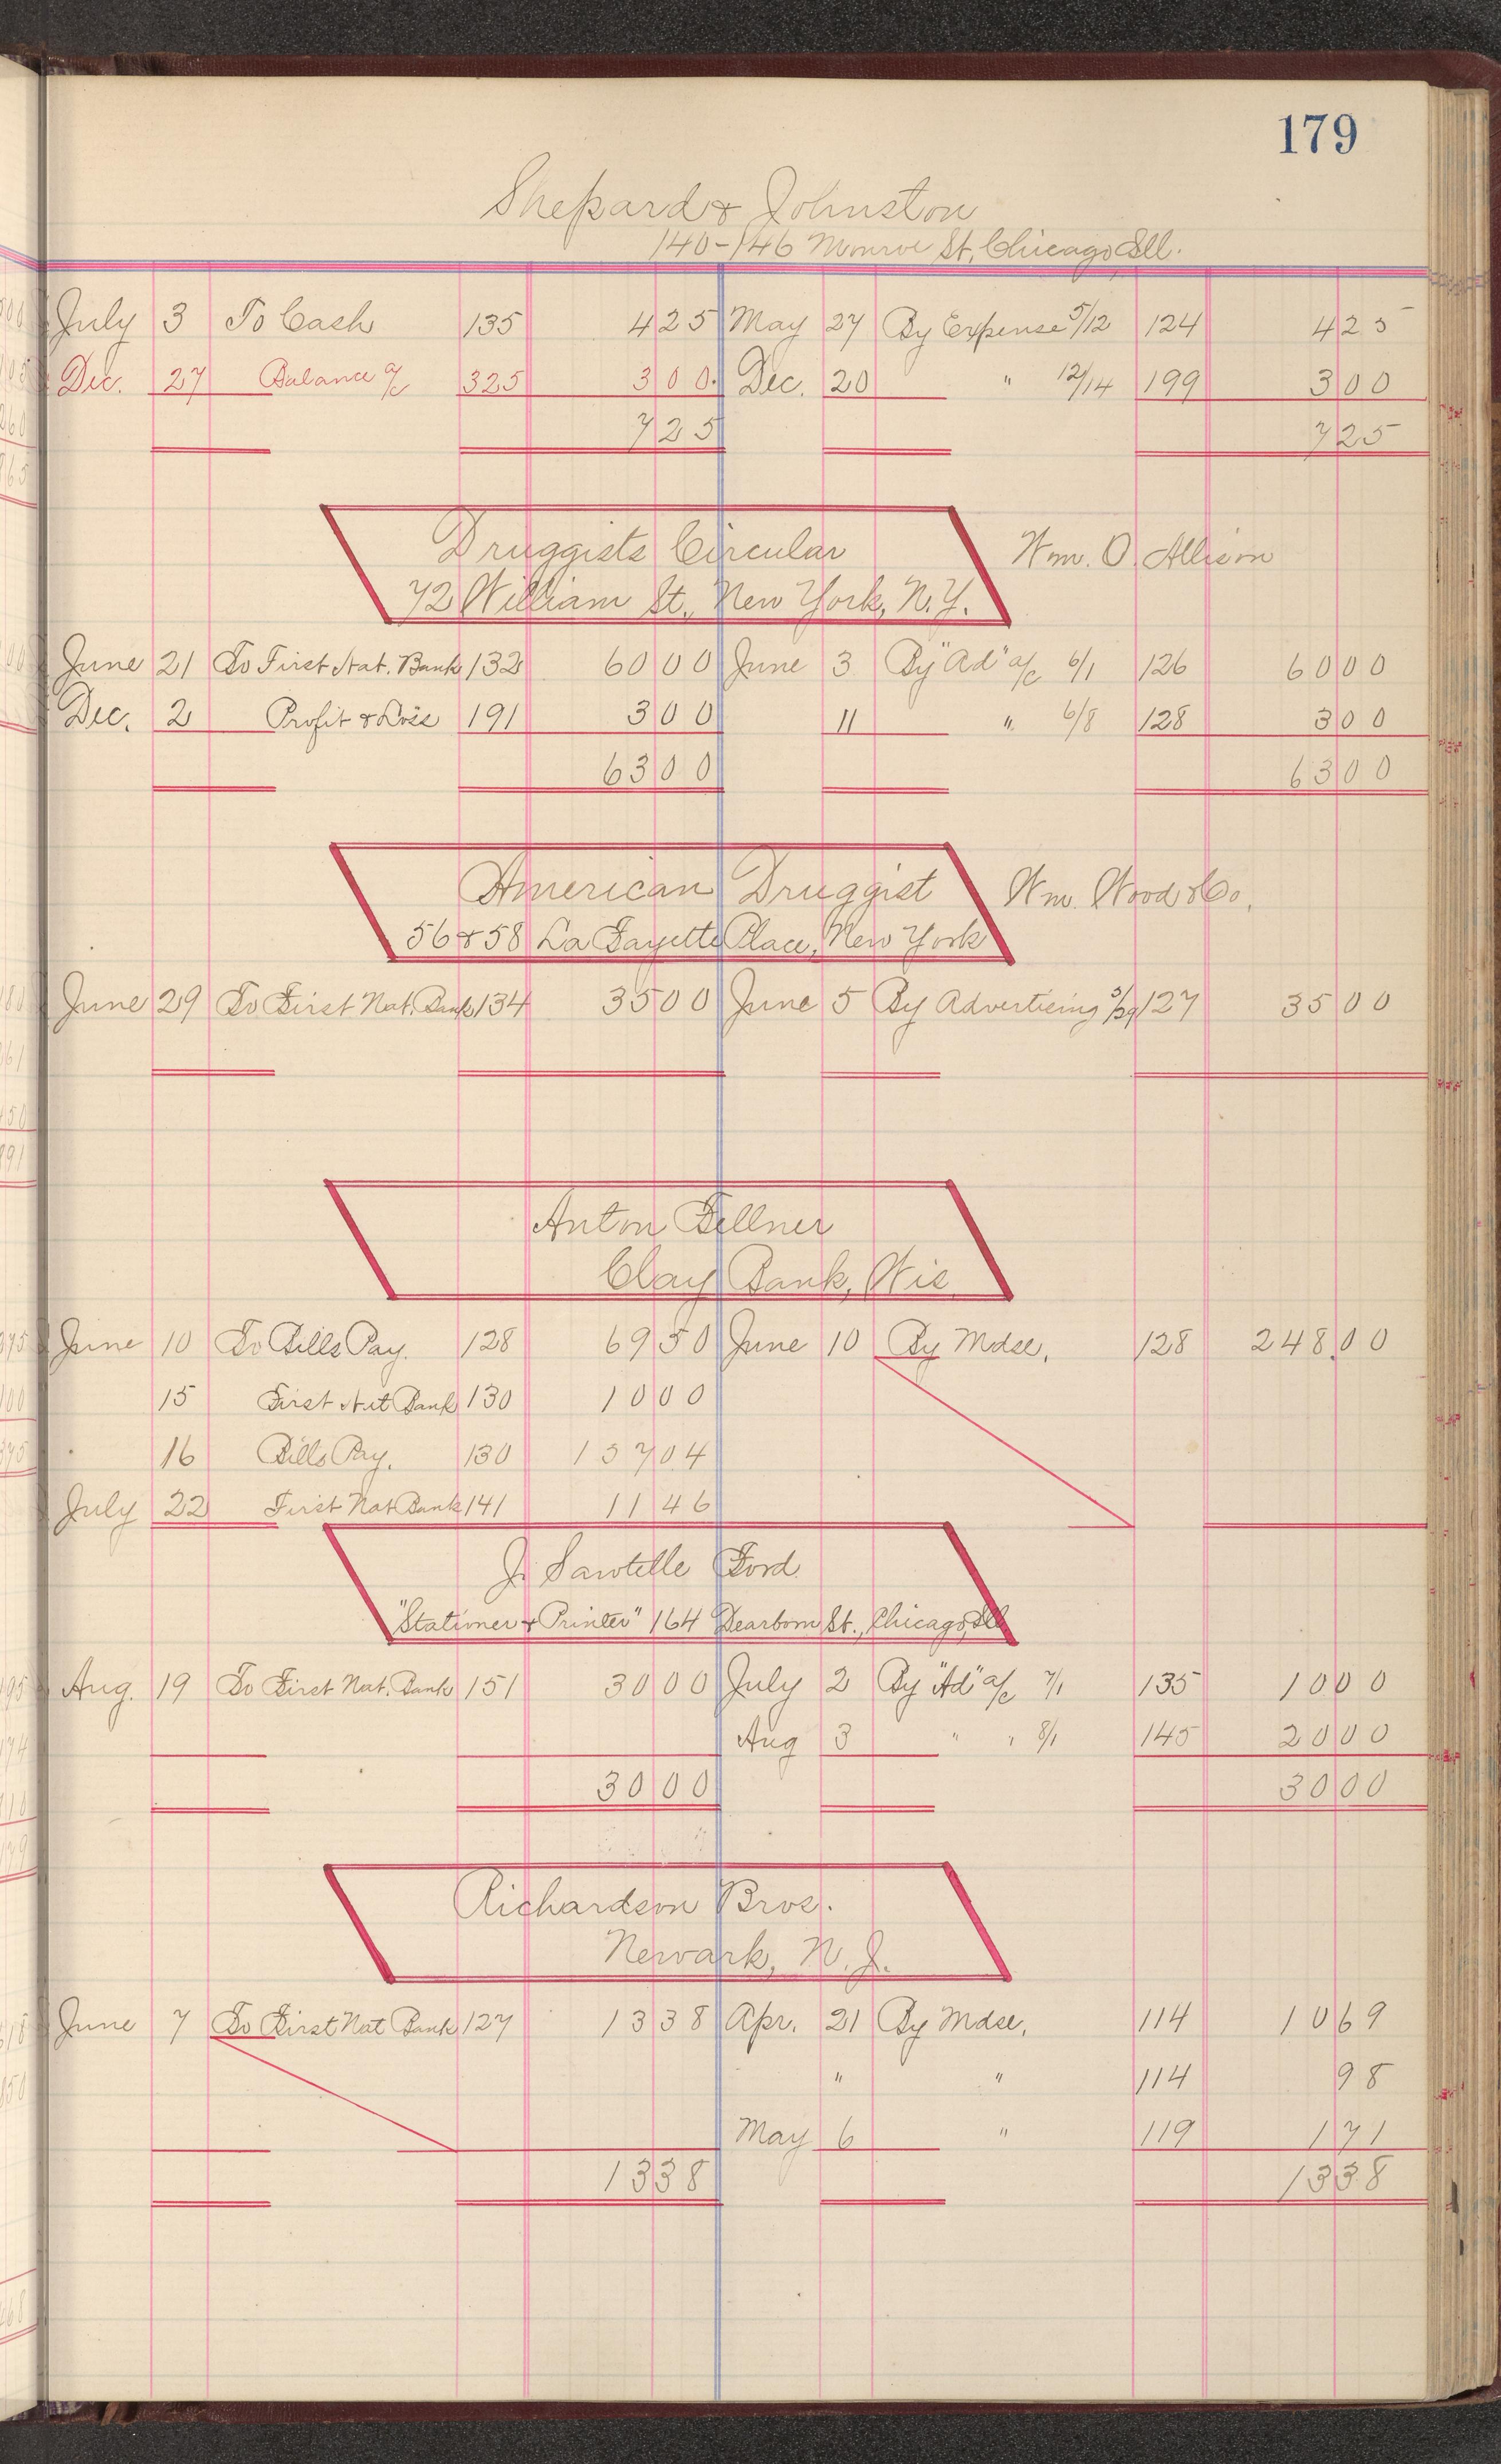 179
Shepard & Johnston
140-146 Monroe St, Chicago, Ill.
July 3 To Cash 135 4 25 May 27 By Expense 5/12 124 4 25
Dec. 27 Balance a/c 325 3 00. Dec. 20 " 12/14 199 3 00
7 25 7 25
Druggists Circular Wm. O. Allison
72 William St., New York, N.Y.
June 21 To First Nat. Bank 132 60 00 June 3 By "Ad" a/c 6/1 126 60 00
Dec. 2 Profit & Loss 191 3 00 11 " 6/8 128 3 00
63 00 63 00
American Druggist Wm. Wood & Co.
56 & 58 La Fayette Place, New York
June 29 To First Nat. Bank 134 35 00 June 5 By Advertising 5/29 127 35 00
Anton Fellner
Clay Bank, Wis.
June 10 To Bills Pay. 128 69 50 June 10 By Mdse. 128 248.00
15 First Nat Bank 130 10 00
16 Bills Pay. 130 157 04
July 22 First Nat Bank 141 11 46
J. Sawtelle Ford
"Stationer & Printer" 164 Dearborn St., Chicago, Ill.
Aug. 19 To First Nat. Bank 151 30 00 July 2 By "Ad" a/c 7/1 135 10 00
Aug 3 " " 8/1 145 20 00
30 00 30 00
Richardson Bros.
Newark, N.J.
June 7 To First Nat Bank 127 13 38 Apr. 21 By Mdse. 114 10 69
" " 114 98
May 6 " 119 1 71
13 38 13 38